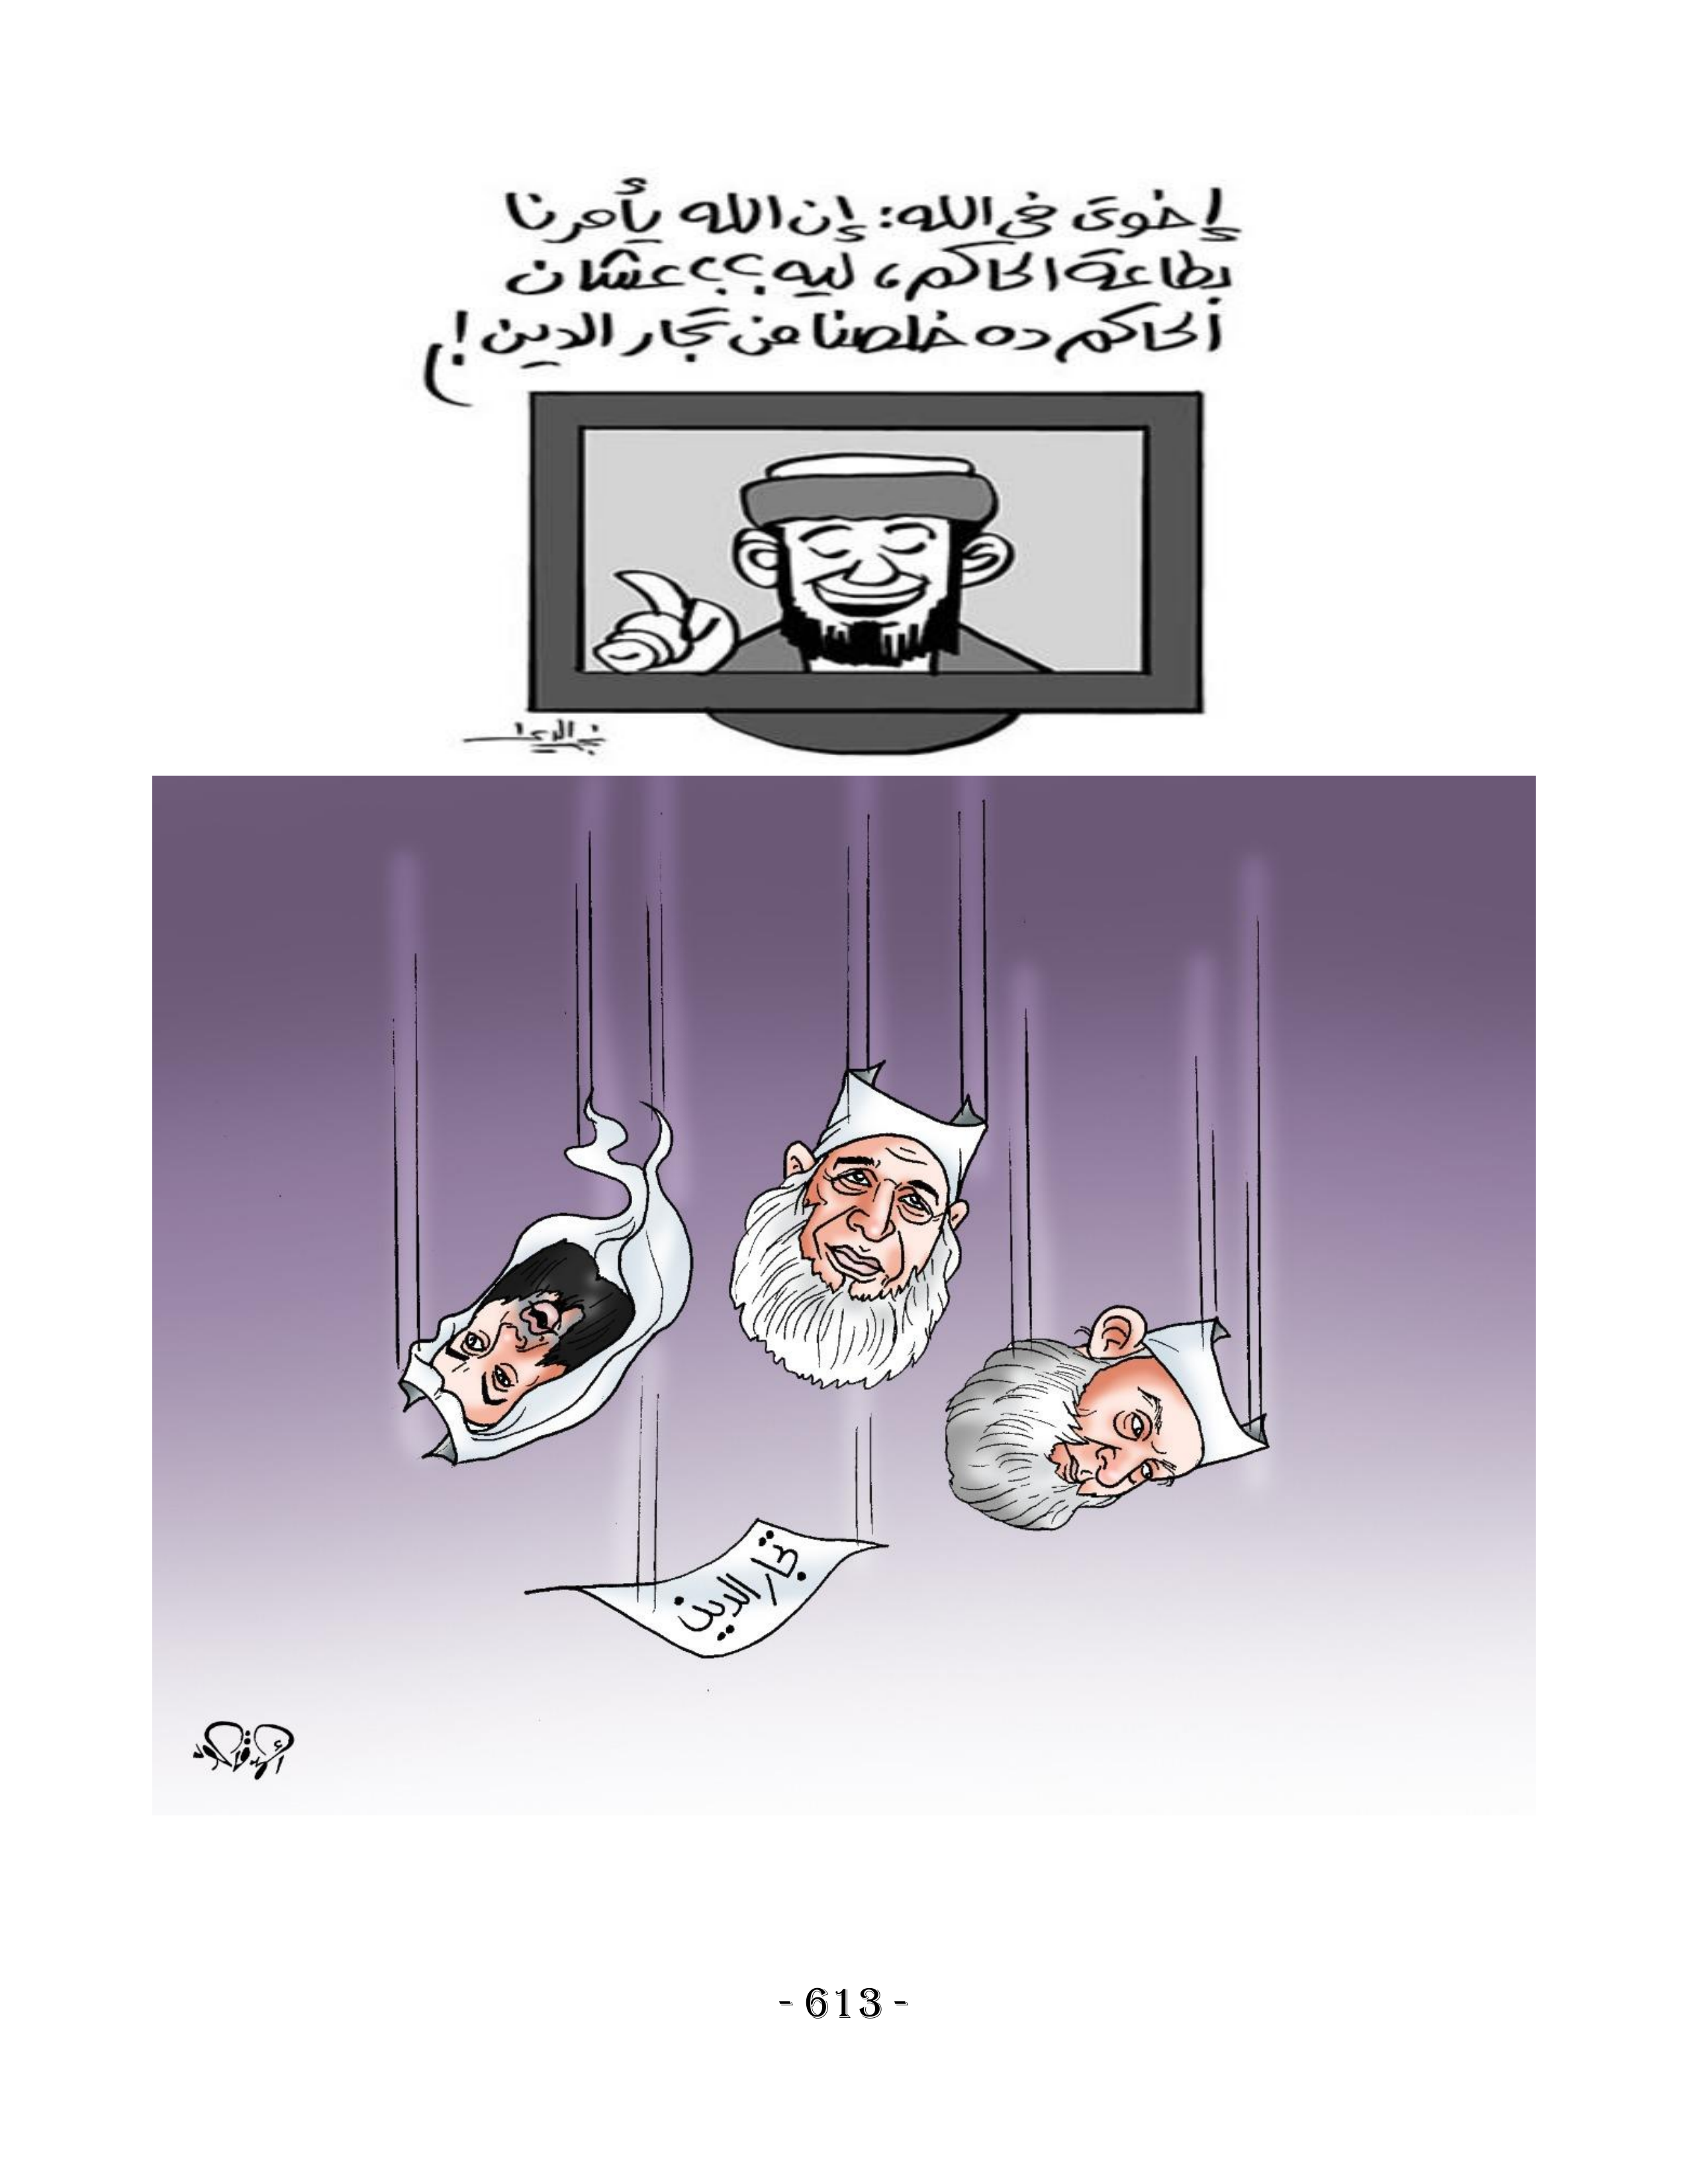 إخوتى فى الله: إن الله يأمرنا
بطاعة الحاكم، ليه؟؟ عشان
الحاكم ده خلصنا من تجار الدين!
تجار الدين
- 613 -